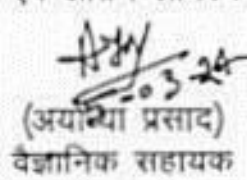 -03-24
(अयोध्या प्रसाद)
वैज्ञानिक सहायक